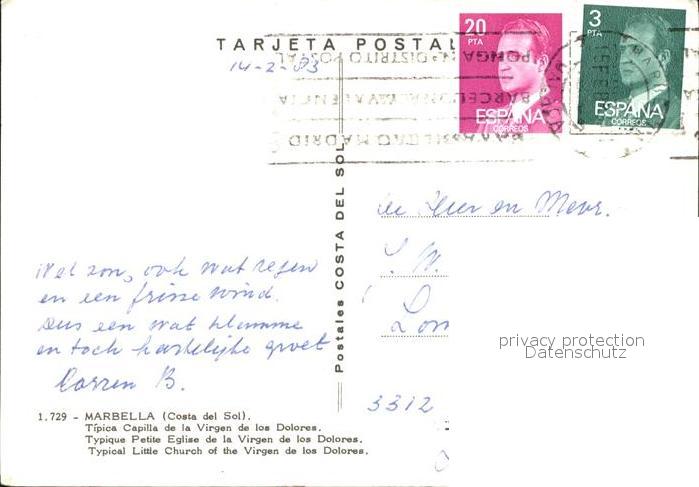 TARJETA POSTAL
14-2-83
20
PTA
ESPAÑA
CORREOS
3
PTA
ESPAÑA
CORREOS
PONGA Nº DISTRITO POSTAL
BARCELONA VALENCIA
BILBAO MADRID
Postales COSTA DEL SOL
Wel zon, ook wat regen
en een frisse wind.
Dus een wat klamme
en toch hartelijke groet
B.
de Heer en Mevr.
3312
privacy protection
Datenschutz
1.729 - MARBELLA (Costa del Sol).
Típica Capilla de la Virgen de los Dolores.
Typique Petite Eglise de la Virgen de los Dolores.
Typical Little Church of the Virgen de los Dolores.